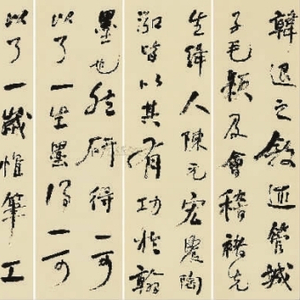 韓退之敘述管城
子毛穎及會稽褚先
生絳人陳元宏農陶
泓皆以其有功於翰
墨也然研得一可
以了一生墨得一可
以了一歲惟筆工